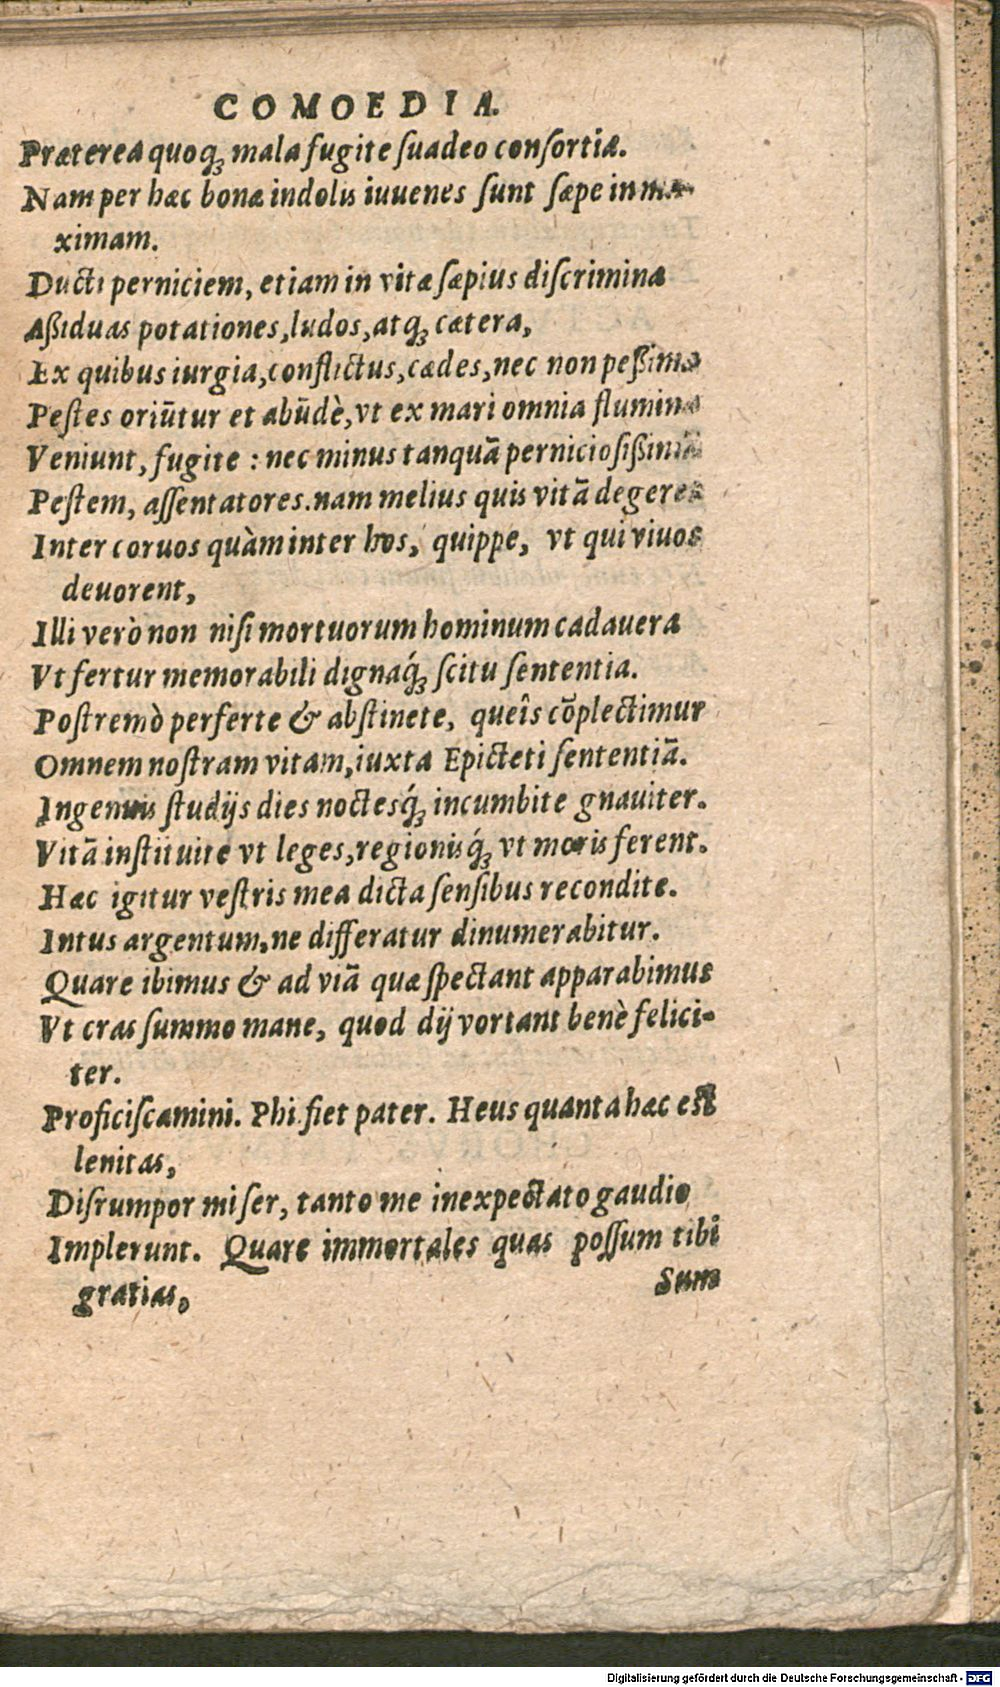 COMOEDIA.
Præterea quoq; mala fugite ſuadeo conſortia.
Nam per hæc bonæ indolis iuuenes ſunt ſæpe in ma-
ximam.
Ducti perniciem, etiam in vitæ ſæpius diſcrimina
Aßiduas potationes, ludos, atq; cætera,
Ex quibus iurgia, conflictus, cædes, nec non peßima
Peſtes oriūtur et abūdè, vt ex mari omnia flumina
Veniunt, fugite: nec minus tanquā pernicioſißimā
Peſtem, aſſentatores. nam melius quis vitā degeret
Inter coruos quàm inter hos, quippe, vt qui viuos
deuorent,
Illi verò non niſi mortuorum hominum cadauera
Vt fertur memorabili dignaq́; ſcitu ſententia.
Poſtremò perferte & abſtinete, queîs cōplectimur
Omnem noſtram vitam, iuxta Epicteti ſententiā.
Ingenuis ſtudijs dies noctesq́; incumbite gnauiter.
Vitā inſtituite vt leges, regionisq́; vt moris ferent.
Hæc igitur veſtris mea dicta ſenſibus recondite.
Intus argentum, ne differatur dinumerabitur.
Quare ibimus & ad viā quæ ſpectant apparabimus
Vt cras ſummo mane, quod dij vortant benè felici-
ter.
Proficiſcamini. Phi. fiet pater. Heus quanta hæc eſt
lenitas,
Diſrumpor miſer, tanto me inexpectato gaudio
Implerunt. Quare immortales quas poſſum tibi
gratias,
Sum
Digitalisierung gefördert durch die Deutsche Forschungsgemeinschaft - DFG